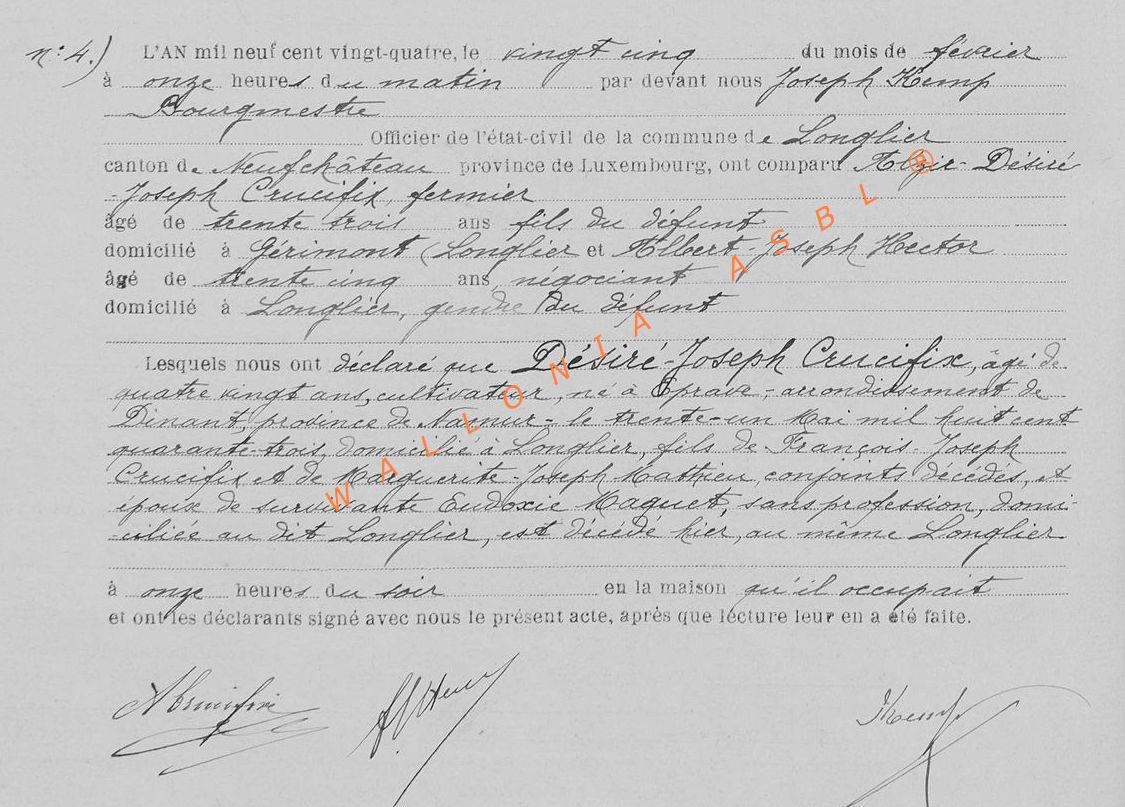 n: 4.) L'AN mil neuf cent vingt-quatre, le vingt cinq du mois de février
à onze heures du matin par devant nous Joseph Kemp
Bourgmestre
Officier de l'état-civil de la commune de Longlier
canton de Neufchâteau province de Luxembourg, ont comparu Désiré
Joseph Crucifix, fermier
âgé de trente trois ans fils du défunt
domicilié à Gérimont (Longlier et Albert Joseph Hector
âgé de trente cinq ans, négociant
domicilié à Longlier, gendre du défunt
Lesquels nous ont déclaré que Désiré-Joseph Crucifix, âgé de
quatre vingt ans, cultivateur, né à Eprave, arrondissement de
Dinant, province de Namur, le trente-un Mai mil huit cent
quarante-trois, domicilié à Longlier, fils de François-Joseph
Crucifix et de Marguerite-Joseph Mathieu, conjoints décédés, et
époux de survivante Eudoxie Maquet, sans profession, domi
ciliée au dit Longlier, est décédé hier, au même Longlier
à onze heures du soir en la maison qu'il occupait
et ont les déclarants signé avec nous le présent acte, après que lecture leur en a été faite.
Kemp
WALLONIA ASBL ®